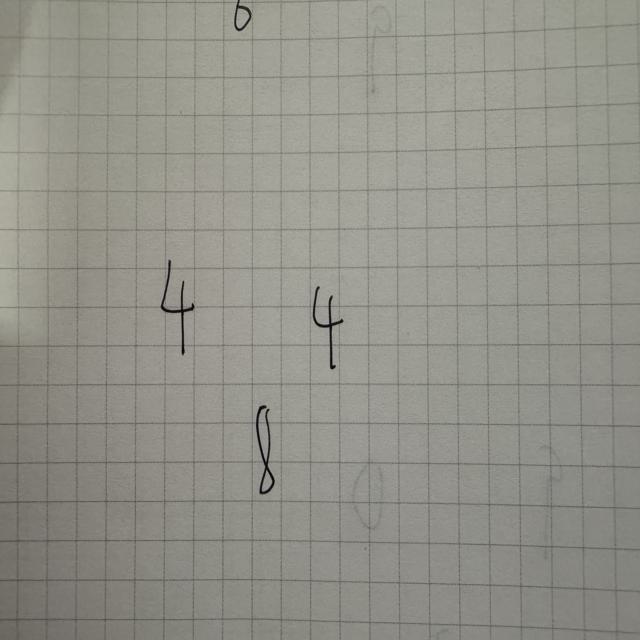 6
4 4
8